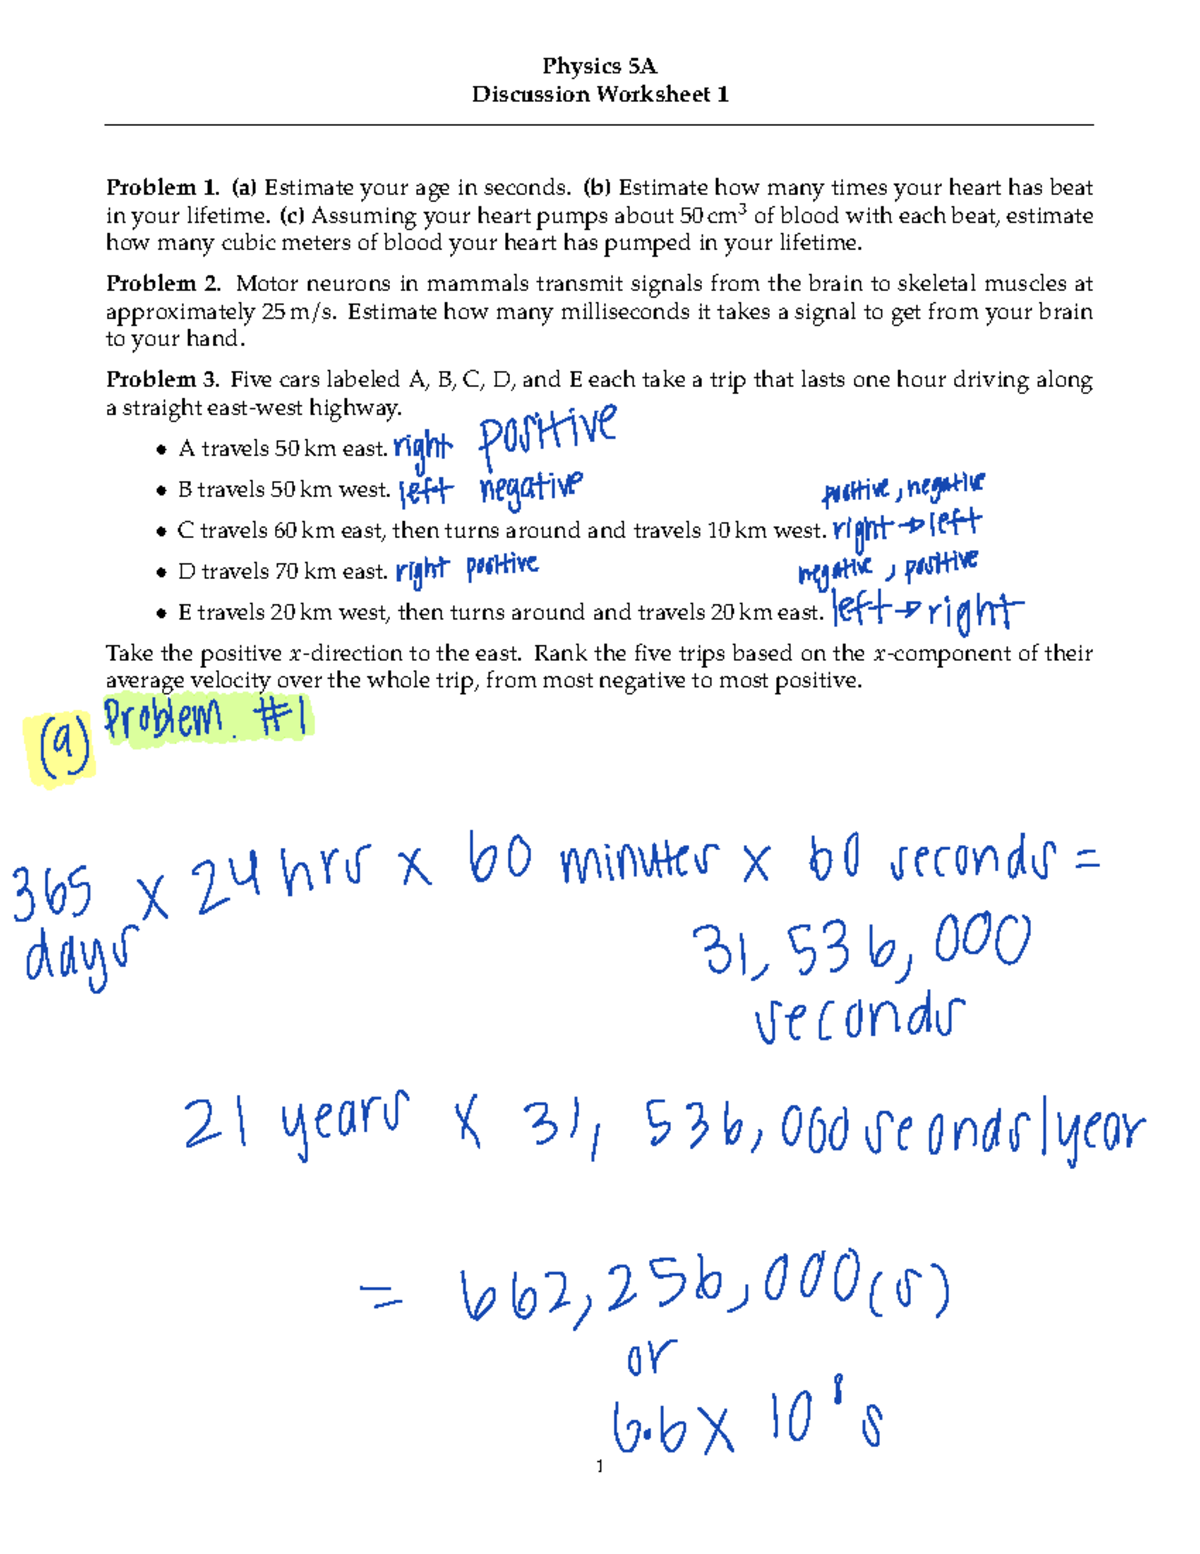 Physics 5A
Discussion Worksheet 1
Problem 1. (a) Estimate your age in seconds. (b) Estimate how many times your heart has beat
in your lifetime. (c) Assuming your heart pumps about 50 cm³ of blood with each beat, estimate
how many cubic meters of blood your heart has pumped in your lifetime.
Problem 2. Motor neurons in mammals transmit signals from the brain to skeletal muscles at
approximately 25 m/s. Estimate how many milliseconds it takes a signal to get from your brain
to your hand.
Problem 3. Five cars labeled A, B, C, D, and E each take a trip that lasts one hour driving along
a straight east-west highway.
• A travels 50 km east. right positive
• B travels 50 km west. left negative
positive, negative
• C travels 60 km east, then turns around and travels 10 km west. right → left
• D travels 70 km east. right positive
negative, positive
• E travels 20 km west, then turns around and travels 20 km east. left → right
Take the positive x-direction to the east. Rank the five trips based on the x-component of their
average velocity over the whole trip, from most negative to most positive.
(a) Problem #1
365 days x 24 hrs x 60 minutes x 60 seconds =
31,536,000
seconds
21 years x 31,536,000 seonds/year
= 662,256,000(s)
or
6.6 x 10⁸ s
1